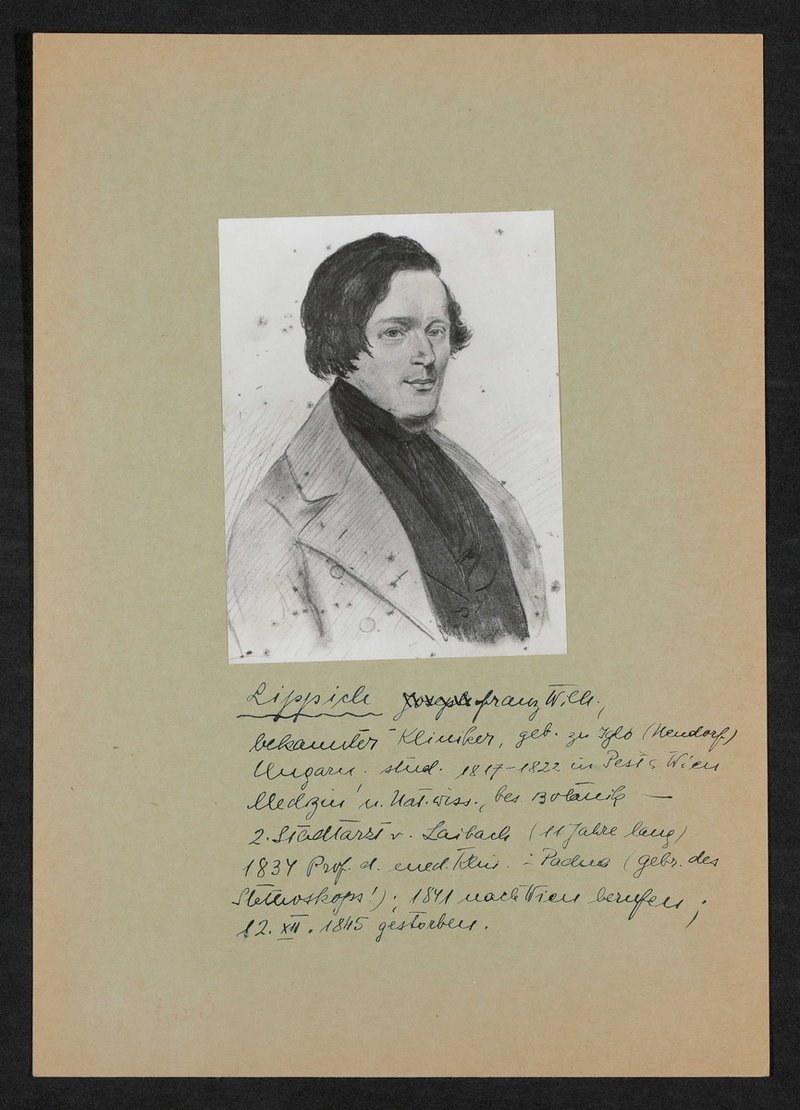 Lippich Joseph Franz Wilh.,
bekannter Kliniker, geb. zu Iglo (Neudorf)
Ungarn. stud. 1817-1822 in Pest & Wien
Medizin u. Nat.wiss., bes. Botanik —
2. Stadtarzt v. Laibach (11 Jahre lang)
1834 Prof. d. med. Klin. i. Padua (gebr. des
Stethoskops!); 1841 nach Wien berufen;
12. XII. 1845 gestorben.